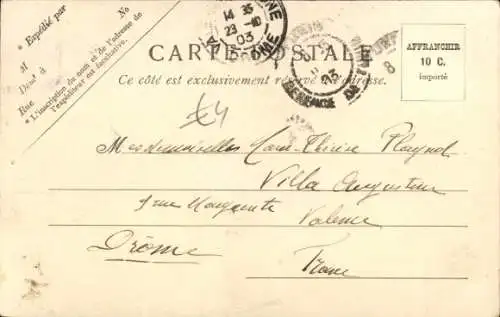 * Expédié par
No
M
Demt à
Rue
* L'inscription du nom et de l'adresse de
l'expéditeur est facultative.
14 35
23 -10
03
DROME
CARTE POSTALE
Ce côté est exclusivement réservé à l'adresse.
AFFRANCHIR
10 C.
importé
8
03
£4
Mesdemoiselles Marie-Thérèse
Villa
rue Marguerite Valence
Drôme
France